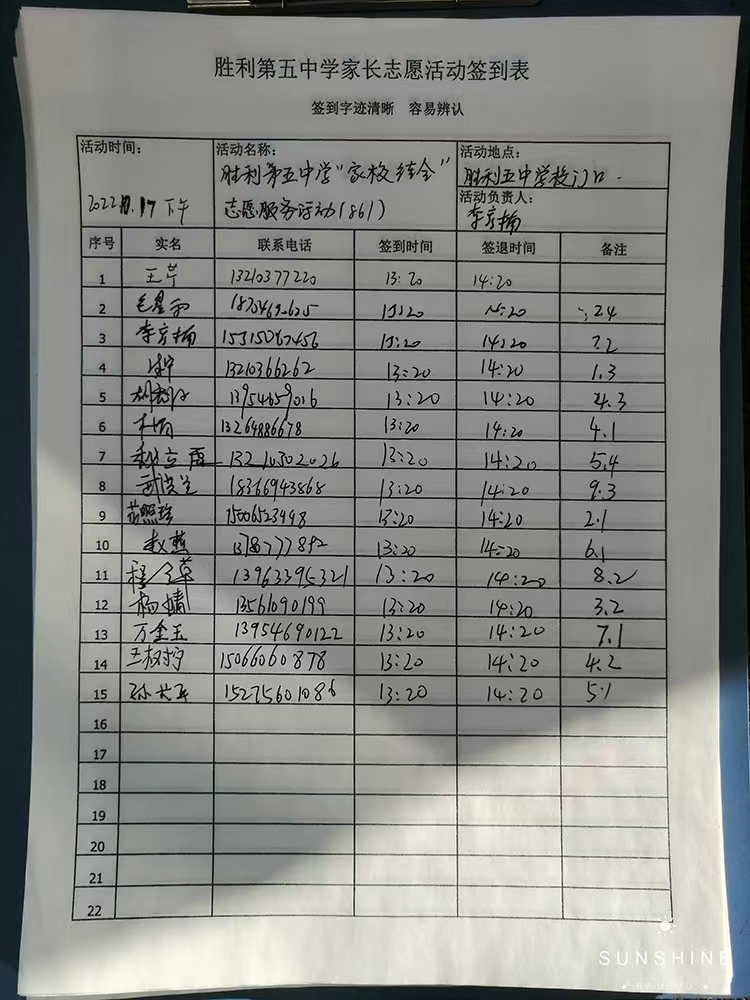 胜利第五中学家长志愿活动签到表
签到字迹清晰 容易辨认
活动时间: 2022.10.17 下午
活动名称: 胜利第五中学"家校结合"
志愿服务活动(861)
活动地点: 胜利五中学校门口.
活动负责人: 李彦楠
序号 实名 联系电话 签到时间 签退时间 备注
1 王芹 13210377220 13:20 14:20
2 13:20 14:20 2.4
3 李彦楠 15315067456 13:20 14:20 7.2
4 13210366262 13:20 14:20 1.3
5 13954659016 13:20 14:20 4.3
6 13264886678 13:20 14:20 4.1
7 13210302026 13:20 14:20 5.4
8 18366943868 13:20 14:20 9.3
9 范照珍 15006523998 13:20 14:20 2.1
10 赵燕 13:20 14:20 6.1
11 13963395321 13:20 14:20 8.2
12 杨婧 13561090199 13:20 14:20 3.2
13 万金玉 13954690122 13:20 14:20 7.1
14 15066060878 13:20 14:20 4.2
15 15275601086 13:20 14:20 5.1
16
17
18
19
20
21
22
SUNSHINE